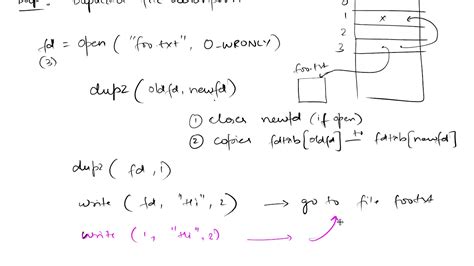 Duplicate file descriptors
fd = open ( "foo.txt", O_WRONLY)
(3)
0
1 x
2
3
foo.txt
dup2 ( oldfd, newfd)
① closes newfd (if open)
② copies fdtab[oldfd] to fdtab[newfd]
dup2 ( fd, 1)
write ( fd, "Hi", 2) → go to file foo.txt
write ( 1, "Hi", 2) →